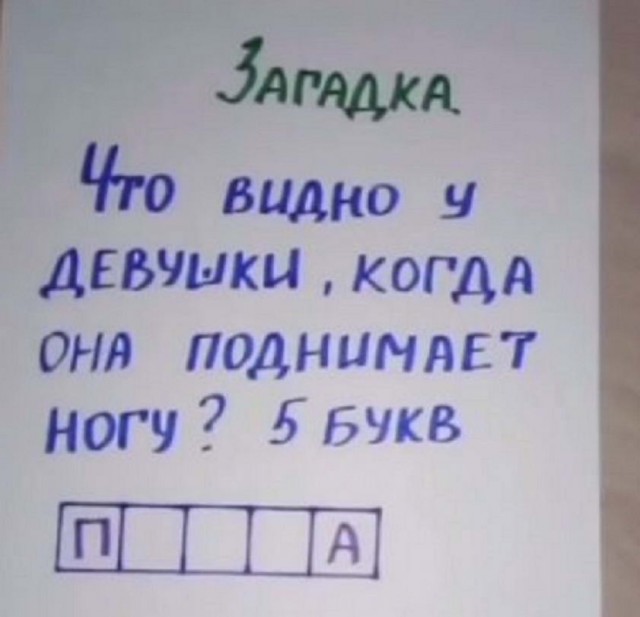 Загадка.
Что видно у
девушки, когда
она поднимает
ногу? 5 букв
П А